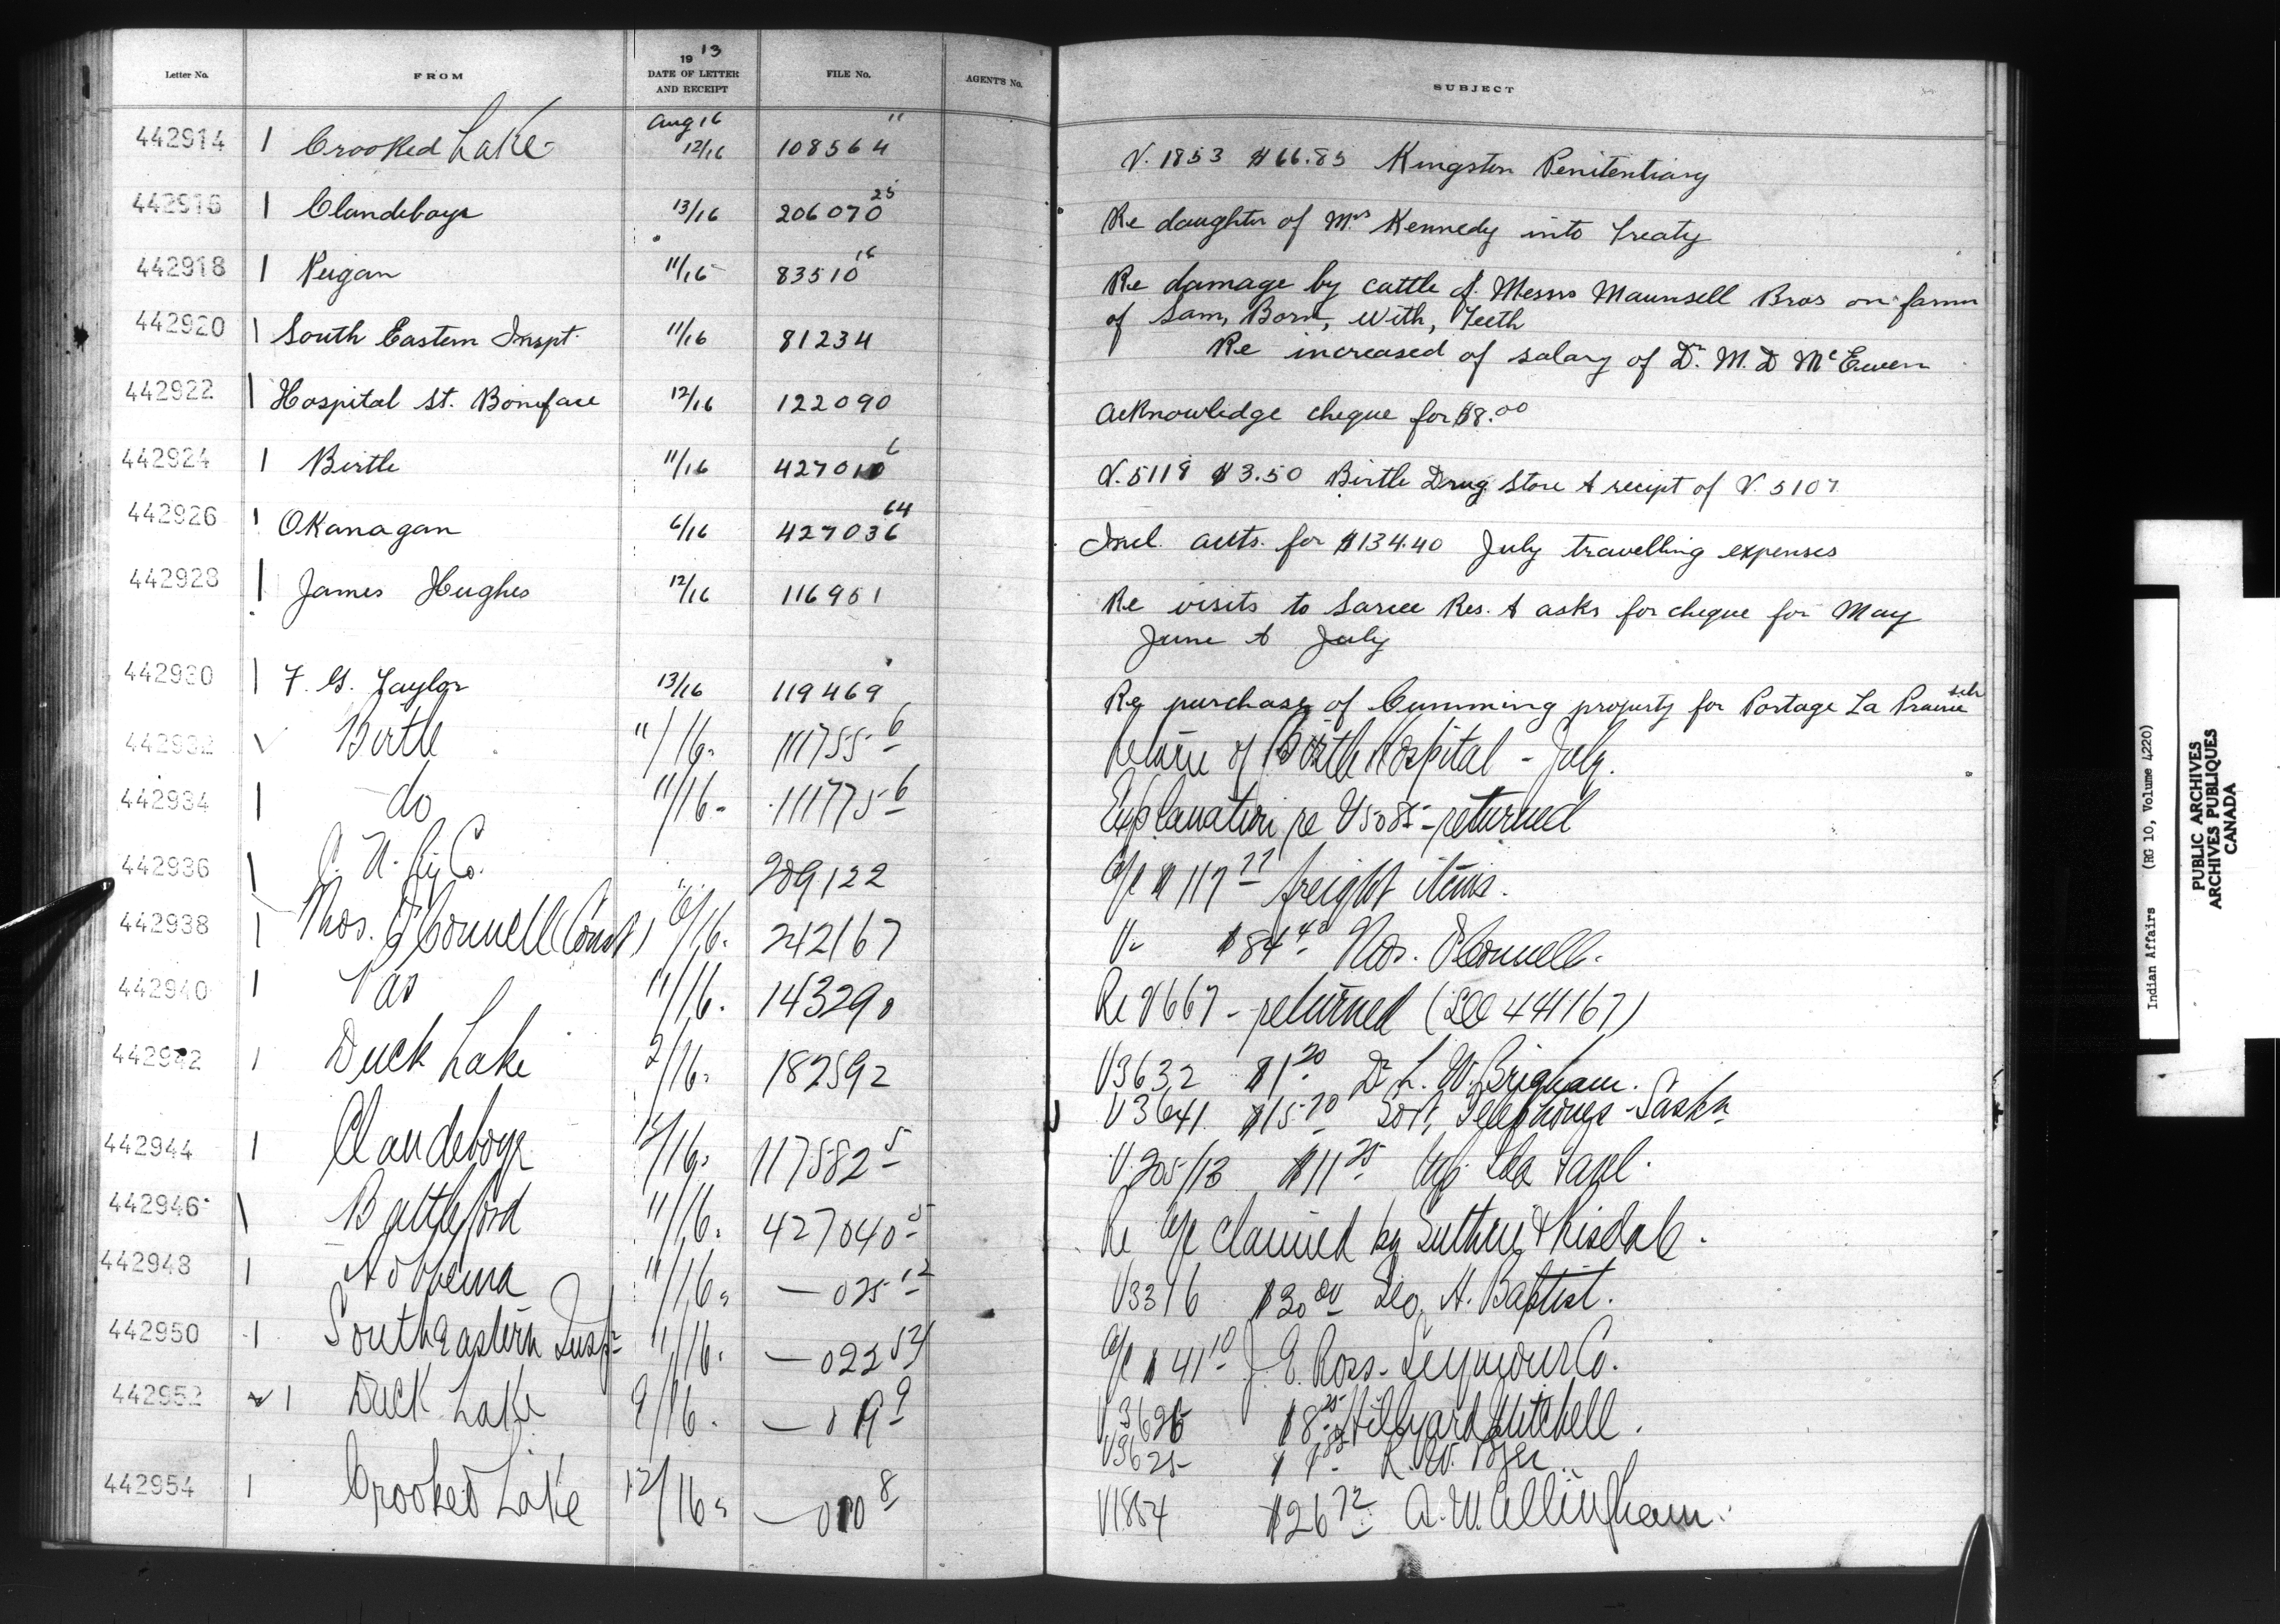 Letter No. FROM 1913 DATE OF LETTER AND RECEIPT FILE No. AGENT'S No. SUBJECT
Aug 16
442914 1 Crooked Lake 12/16 108564 11 V. 1853 $66.85 Kingston Penitentiary
442916 1 Clandeboye 13/16 206070 25 Re daughter of Mrs Kennedy into Treaty
442918 1 Peigan 11/16 83510 16 Re damage by cattle of Messrs Maunsell Bros on farm
of Sam, Born, With, Teeth
442920 1 South Eastern Inspt. 11/16 81234 Re increased of salary of Dr. M. D McEwen
442922 1 Hospital St. Boniface 12/16 122090 Acknowledge cheque for $8.00
442924 1 Birtle 11/16 427010 6 V. 5119 $3.50 Birtle Drug Store & recipt of V. 5107
442926 1 Okanagan 6/16 427036 64 Incl. accts. for $134.40 July travelling expenses
442928 1 James Hughes 12/16 116951 Re visits to Sarcee Res. & asks for cheque for May
June & July
442930 1 F. G. Taylor 13/16 119469 Re purchase of Cumming property for Portage La Prairie sch
442932 Birtle 11/16 111755 6 Return of Birtle Hospital - July.
442934 1 do 11/16 111775 6 Explanation re V5085 - returned
442936 1 C. N. Ry Co. 209122 a/c $117 77 freight items.
442938 1 Thos. O'Connell (Const) 6/16. 242167 V. $84 40 Thos. O'Connell.
442940 1 Pas 11/16. 143290 Re V667 - returned (See 441167)
442942 1 Duck Lake 2/16. 182592 V3632 $1 20 Dr L. W. Brigham.
V3641 $15 70 Govt. Telephones Saskn
442944 1 Clandeboye 12/16. 117582 5 V. 205/13 $11 25
442946 1 Battleford 11/16. 427040 5 Re a/c claimed by
442948 1 Hobbema 11/16. — 025 12 V3376 $30 00 Geo. A. Baptist.
442950 1 South Eastern Insp. 11/16. — 022 54 a/c $41 10 J. E. Ross - Seymour Co.
442952 1 Duck Lake 9/16. — 019 9 V3626 $8 25 Hillyard Mitchell.
V3625 R. W.
442954 1 Crooked Lake 12/16. — 010 8 V1854 $26 72 A. W. Allingham.
Indian Affairs (RG 10, Volume 4220)
PUBLIC ARCHIVES
ARCHIVES PUBLIQUES
CANADA